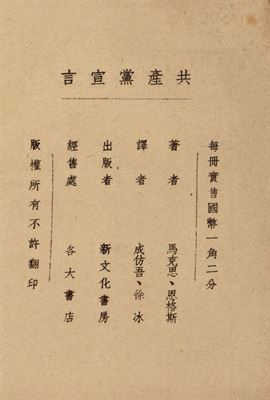 共產黨宣言
每冊實售國幣一角二分
著者 馬克思、恩格斯
譯者 成仿吾、徐冰
出版者 新文化書房
經售處 各大書店
版權所有不許翻印